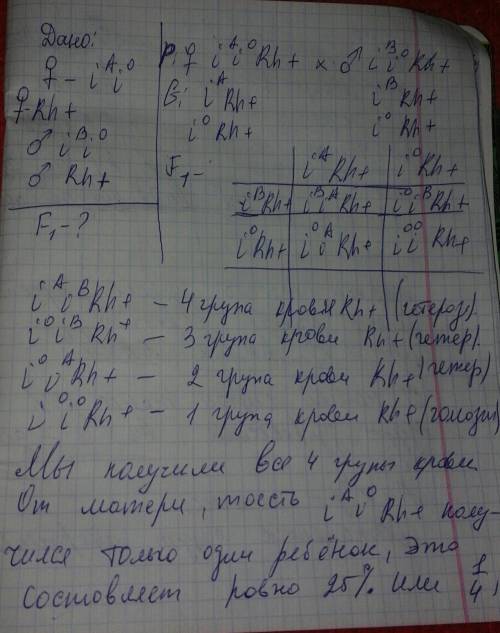 Дано:
♀ - i^A i^O
♀ Rh+
♂ i^B i^O
♂ Rh+
F₁ - ?
P: ♀ i^A i^O Rh+ x ♂ i^B i^O Rh+
G: i^A Rh+ i^B Rh+
i^O Rh+ i^O Rh+
F₁ -
i^A Rh+ i^O Rh+
i^B Rh+ i^B i^A Rh+ i^O i^B Rh+
i^O Rh+ i^O i^A Rh+ i^O i^O Rh+
i^A i^B Rh+ - 4 група крови Rh+ (гетероз).
i^O i^B Rh+ - 3 група крови Rh+ (гетер).
i^O i^A Rh+ - 2 група крови Rh+ (гетер)
i^O i^O Rh+ - 1 група крови Rh+ (гомоз)
Мы получили все 4 групы крови
От матери, тоесть i^A i^O Rh+ полу-
чился только один ребёнок, это
состовляет ровно 25% или 1/4